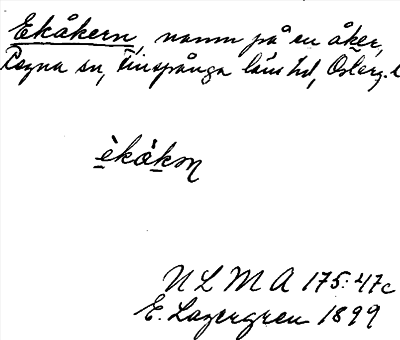 Ekåkern, namn på en åker,
Regna sn, Finspånga läns hd, Österg. l
èkåkɷn
NLMA 175:47c
E. Lagergren 1899